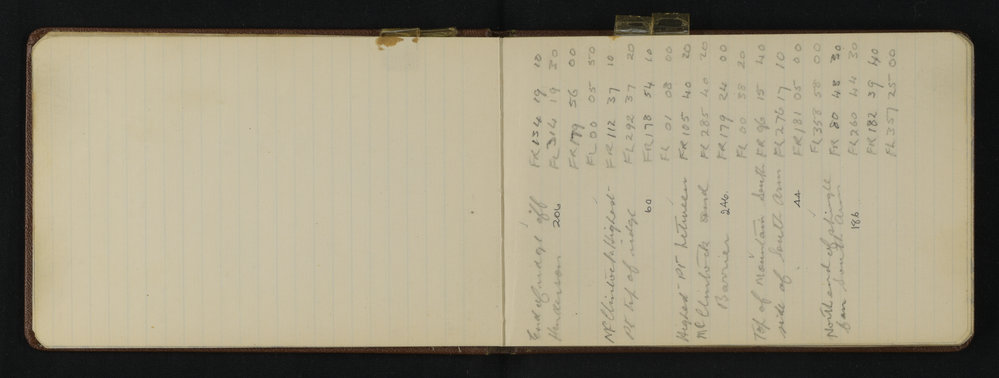 End of ridge off FR 134 19 10
Henderson 206 FL 314 19 30
FR 179 56 00
FL 00 05 50
McClintock Highest FR 112 37 10
Pt top of ridge FL 292 37 20
60 FR 178 54 10
FL 01 08 00
Highest Pt between FR 105 40 20
McClintock and FL 285 40 20
Barrier 246 FR 179 24 00
FL 00 38 20
Top of Mountain South FR 96 15 40
side of South Arm FL 276 17 10
44 FR 181 05 00
FL 358 58 00
North end of shingle FR 80 43 30
fan South Arm FL 260 44 30
186 FR 182 39 40
FL 357 25 00